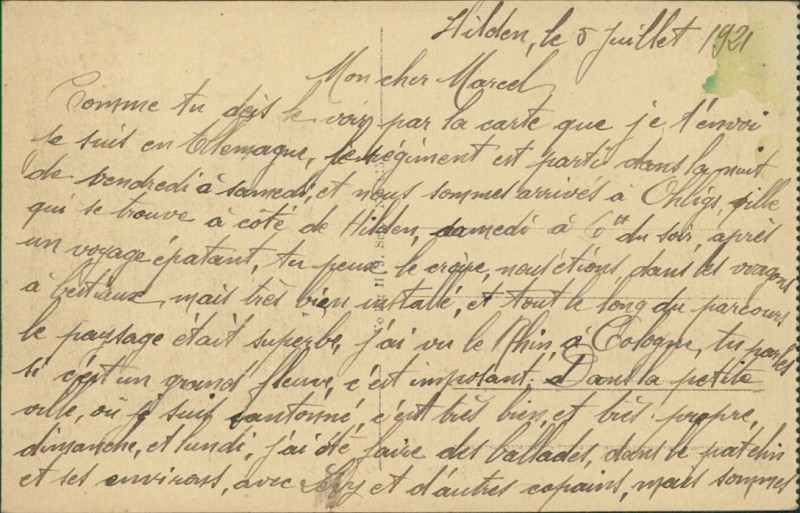 Hilden, le 5 Juillet 1921
Mon cher Marcel
Comme tu dois le voir par la carte que je t'envoi
je suis en Allemagne, le régiment est parti dans la nuit
de vendredi à samedi, et nous sommes arrivés à Ohligs, ville
qui se trouve à côté de Hilden, samedi à 6H du soir, après
un voyage épatant, tu peux le croire, nous étions, dans les wagons
à bestiaux, mais très bien installé, et tout le long du parcours
le paysage était superbe, j'ai vu le Rhin, à Cologne, tu parles
si c'est un grand fleuve, c'est imposant, Dans la petite
ville, où je suis cantonné, c'est très bien, et très propre,
dimanche, et lundi, j'ai été faire des ballades, dans le patelin
et ses environs, avec et d'autres copains, mais sommes